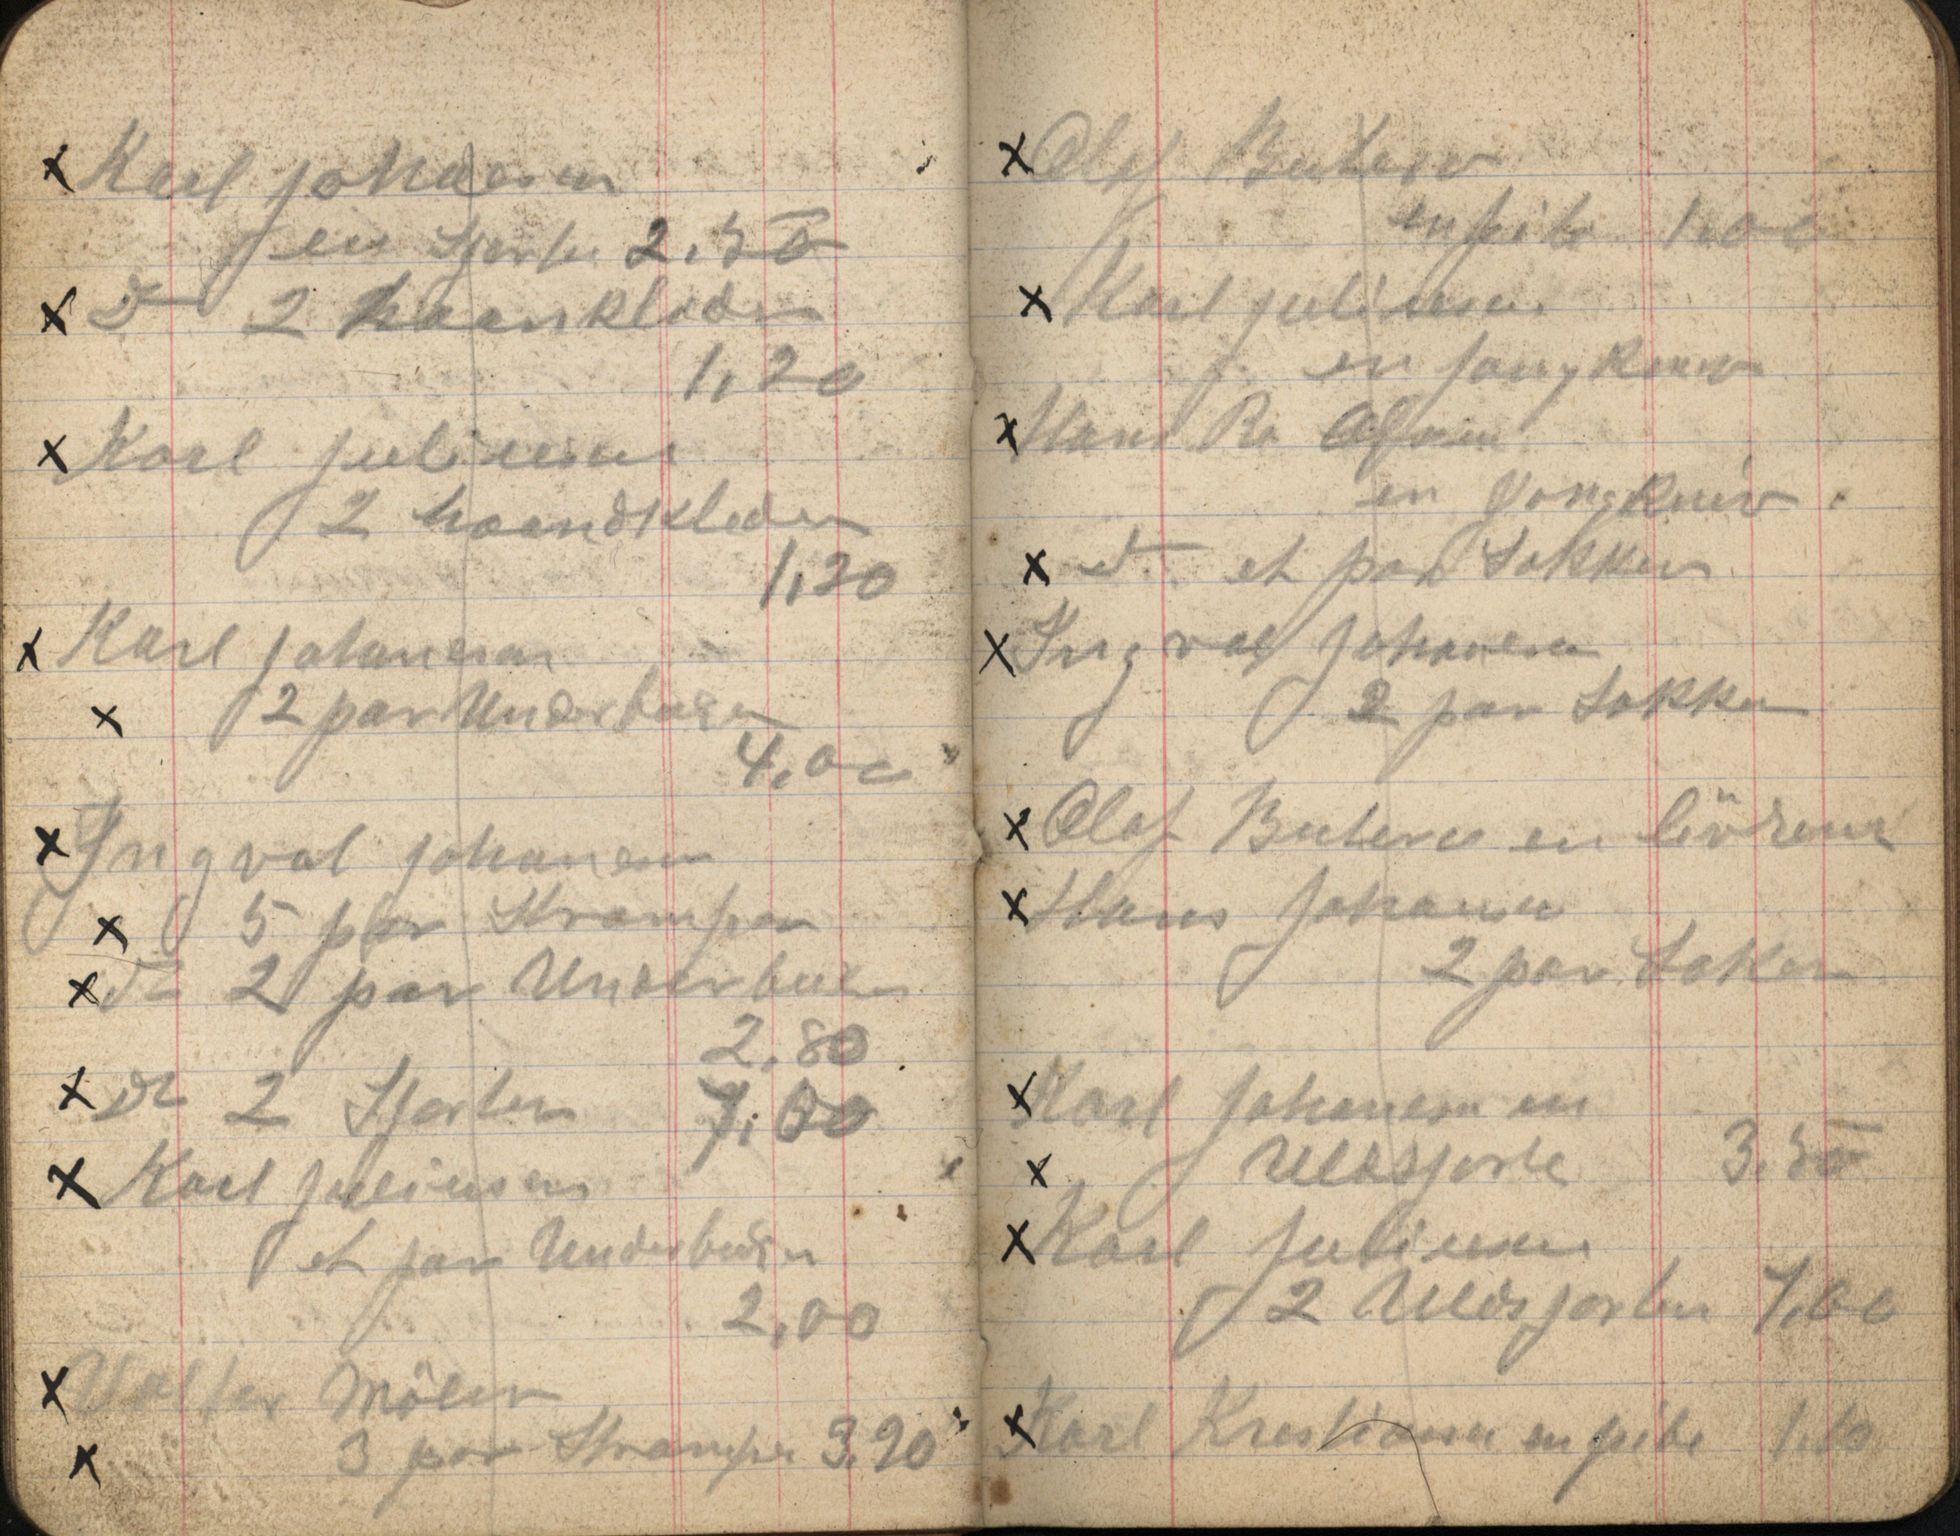 x Karl Johansen
en Sjorte 2.50
x Do 2 haankleder
1,20
x Karl Juliusen
2 haandkleder
1,20
x Karl Johanesen
x 2 par Underbuser
4,00
x Ingval Johanesen
x 5 par Strømper
x Do 2 par Underbuser
2,80
x Do 2 Sjorter 7,00
x Karl Juliusen
et par Underbuser
2,00
x Valter Möler
x 3 par Strømper 3.90
x Olaf
en pibe 1,00
x Karl Juliusen
en
x Hans
en
x Do et par Sokker
x Ingval Johanesen
2 par Sokker
x Olaf en livreim
x Hans Johansen
2 par Soker
x Karl Johanesen en
x Uldsjorte 3.50
x Karl Juliusen
2 Uldsjorter 7,00
x Karl Krestiansen en pibe 1.10